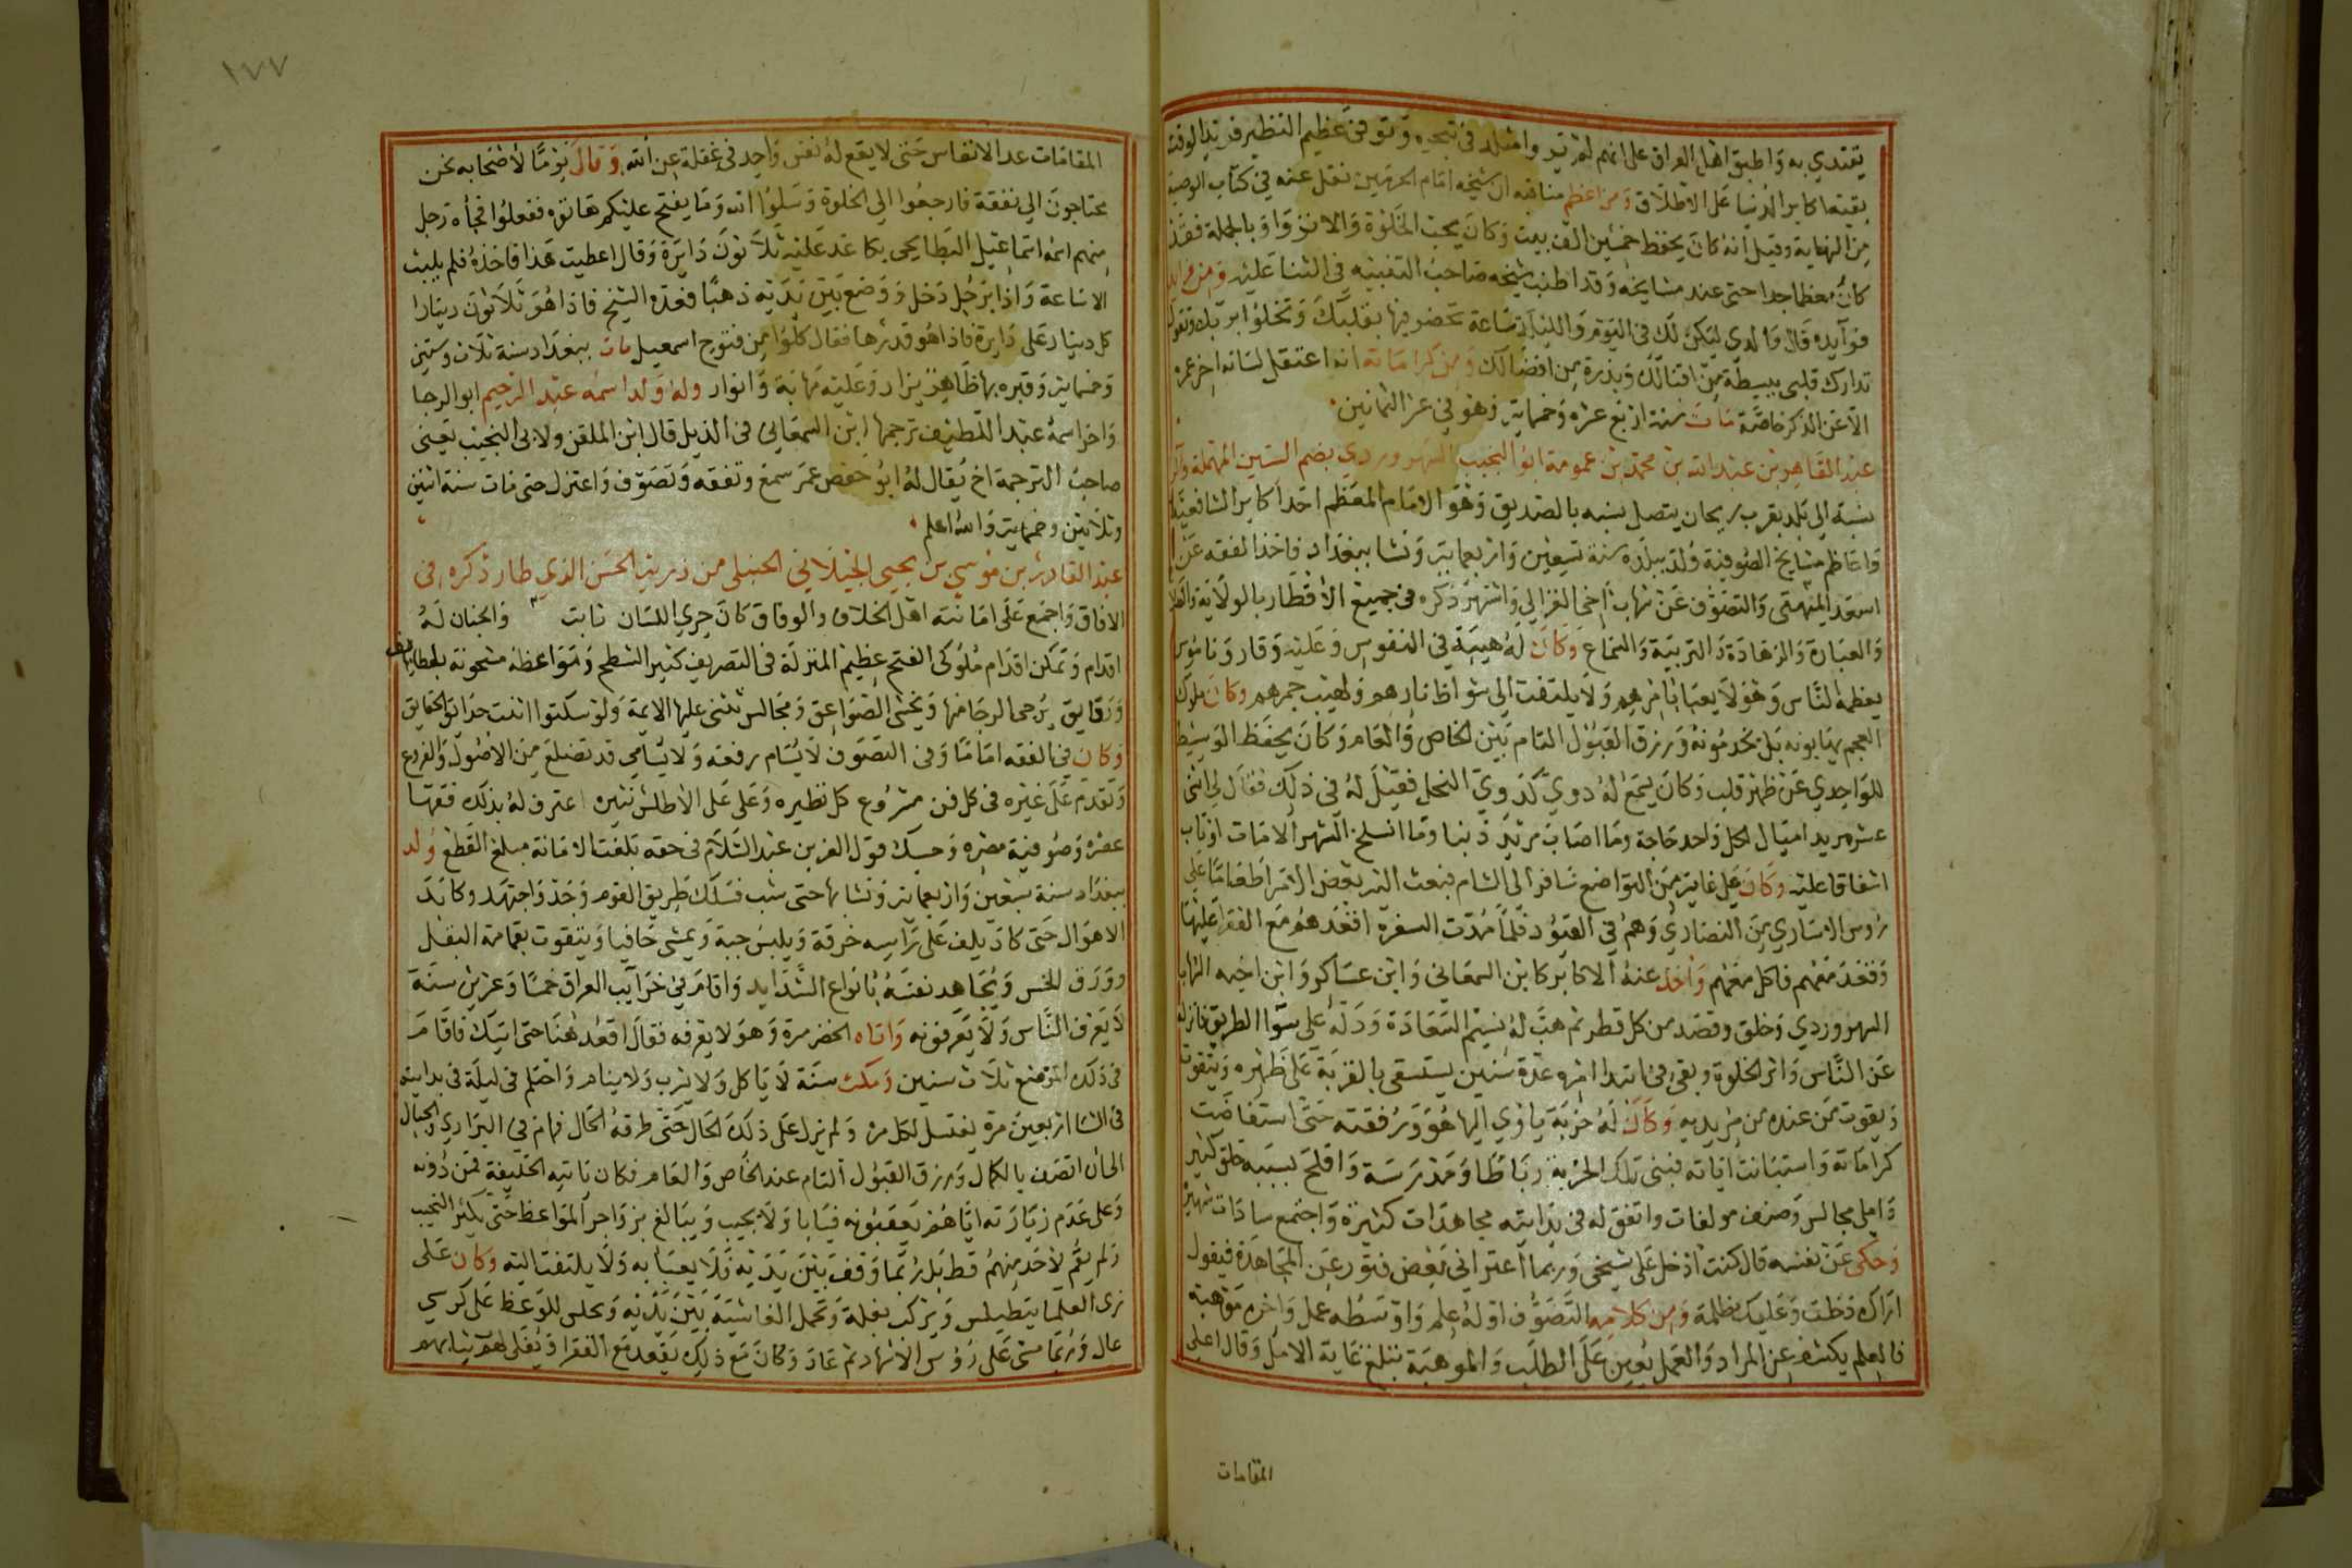 يقتدي به واطبق اهل العراق على انهم لم تر وا مثله في تبحره وتوفي عظيم النظير فريد الوقت
بقية اكابر الدنيا على الاطلاق ومن اعظم مناقبه ان شيخه امام الحرمين نقل عنه في كتاب الوصية
من النهاية وقيل انه كان يحفظ خمسين الف بيت وكان يحب الخلوة والانزوا وبالجملة فقد
كان معظما جدا حتى عند مشايخه وقد اطنب شيخه صاحب التنبيه في الثنا عليه ومن
فوآيده قال والدي ليكن لك في اليوم والليلة ساعة تحضر فيها بقلبك وتخلوا بربك وتقول
تدارك قلبي ببسطة من اقبالك وبذرة من افضالك ومن كراماته انه اعتقل لسانه اخر عمره
الا عن الذكر خاصة مات سنة اربع عشره وخمماية وهو في عز الثمانين
عبد القاهر بن عبد الله بن محمد بن عمومة ابو النجيب السهروردي بضم السين المهملة
نسبة الى بلد بقرب زنجان يتصل نسبه بالصديق وهو الامام المعظم احد اكابر الشافعية
واعاظم مشايخ الصوفية ولد ببلده سنة تسعين واربعماية ونشا ببغداد فاخذ الفقه عن
اسعد الميهني والتصوف عن شهاب اخي الغزالي واشتهر ذكره في جميع الاقطار بالولاية
والعبادة والزهادة والتربية والسماع وكان له هيبة في النفوس وعليه وقار وناموس
يعظمه الناس وهو لا يعبا بامرهم ولا يلتفت الى شواظ نارهم ولهيب جمرهم وكان ملوك
العجم يهابونه بل يخدمونه ورزق القبول التام بين الخاص والعام وكان يحفظ الوسيط
للواحدي عن ظهر قلب وكان يسمع له دوي كدوي النحل فقيل له في ذلك فقال لي اثنى
عشر مريدا مييال لكل واحد حاجة وما اصاب مريد ذنبا وما انسلخ الشهر الا مات او تاب
اشفاقا عليه وكان على غاية من التواضع سافر الى الشام فبعث اليه بعض الامرا طعاما على
روس الاسارى من النصارى وهم في القيود فلما مدت السفرة اقعدهم مع الفقرا عليها
وقعد معهم فاكل معهم واخذ عنه الاكابر كابن السمعاني وابن عساكر وابن اخيه الشهاب
السهروردي وخلق وقصد من كل قطر ثم هب له نسيم السعادة ودله على سوا الطريق فانعزل
عن الناس واثر الخلوة وبقي في ابتدا امره عدة سنين يستسقى بالقربة على ظهره ويتقوت
ويقوت من عنده من مريديه وكان له خربة ياوي اليها هو ورفقته حتى استفاضت
كراماته واستبانت اياته فبنى تلك الخربة رباطا ومدرسة وافلح بسببه خلق كثير
واملى مجالس وصنف مولفات واتفق له في بدايته مجاهدات كثيرة واجتمع سادات شهيرة
وحكى عن نفسه قال كنت ادخل على شيخي وربما اعتراني بعض فتور عن المجاهدة فيقول
اراك دخلت وعليك ظلمة ومن كلامه التصوف اوله علم واوسطه عمل واخره موهبة
فالعلم يكشف عن المراد والعمل يعين على الطلب والموهبة تبلغ غاية الامل وقال اعلى
المقامات
١٧٧
المقامات عد الانفاس حتى لا يقع له نفس واحد في غفلة عن الله وقال يوما لاصحابه نحن
محتاجون الى نفقة فارجعوا الى الخلوة وسلوا الله وما يفتح عليكم هاتوه ففعلوا فجاه رجل
منهم اسمه اسماعيل البطايحي بكاغد عليه ثلاثون دايرة وقال اعطيت هذا فاخذه فلم يلبث
الا ساعة واذا برجل دخل ووضع بين يديه ذهبا فعده الشيخ فاذا هو ثلاثون دينارا
كل دينار على دايرة فاذا هو قدرها فقال كلوا من فتوح اسمعيل مات ببغداد سنة ثلاث وستين
وخماية وقبره بها ظاهر يزار وعليه مهابة وانوار وله ولد اسمه عبد الرحيم ابو الرجا
واخر اسمه عبد اللطيف ترجمها ابن السمعاني في الذيل قال ابن الملقن ولابي النجيب يعني
صاحب الترجمة اخ يقال له ابو حفص عمر سمع وتفقه وتصوف واعتزل حتى مات سنة اثنين
وثلاثين وخمماية والله اعلم
عبد القادر بن موسي بن يحيي الجيلاني الحنبلي من ذرية الحسن الذي طار ذكره في
الافاق واجتمع على امانته اهل الخلاف والوفاق كان جري اللسان ثابت والجنان له
اقدام وتمكن اقدام ملوكي الفتح عظيم المنزلة في التصريف كثير الشطح ومواعظه مشحونة بلطايف
ورقايق يرجى الرجا منها ويخشى الصواعق ومجالس تثنى عليها الايمة ولو سكتوا اثنت حدايق الحقايق
وكان في الفقه اماما وفي التصوف لا يسام رفعة ولا يسامى قد تضلع من الاصول والفروع
وتقدم على غيره في كل فن مشروع كل نظيره وعلى على الاطلس نثيره اعترف له بذلك فقها
عصره وصوفية مصره وحسبك قول العز بن عبد السلام في حقه بلغت الامانة مبلغ القطع ولد
ببغداد سنة سبعين واربعماية ونشا بها حتى شب فسلك طريق القوم وجد واجتهد وكابد
الاهوال حتى كاد يلف على راسه خرقة ويلبس جبة ويمشي حافيا ويتقوت بقمامة البقل
وورق الخس ويجاهد نفسه بانواع الشدايد واقام في خرايب العراق خمسا وعشرين سنة
لا يعرف الناس ولا يعرفونه واتاه الخضر مرة وهو لا يعرفه فقال اقعد هنا حتى اتيك فاقام
في ذلك الموضع ثلاث سنين ومكث سنة لا ياكل ولا يشرب ولا ينام واحتلم في ليلة في بدايته
في الشتا اربعين مرة يغتسل لكل مرة ولم يزل على ذلك الحال حتى طرقه الحال فهام في البراري والجبال
الى ان اتصف بالكمال ورزق القبول التام عند الخاص والعام فكان ياتيه الخليفة فمن دونه
وعلى عدم زيارته اياهم يعتبونه فيابا ولا يجيب ويبالغ بزواجر المواعظ حتى يكثر النحيب
ولم يقم لاحد منهم قط بل ربما وقف بين يديه ولا يعبا به ولا يلتفت اليه وكان على
زي العلما يتطيلس ويركب بغلة وتحمل الغاشية بين يديه ويجلس للوعظ على كرسي
عال وربما مشى على روس الاشهاد ثم عاد وكان مع ذلك يقعد مع الفقرا ويفلى لهم ثيابهم